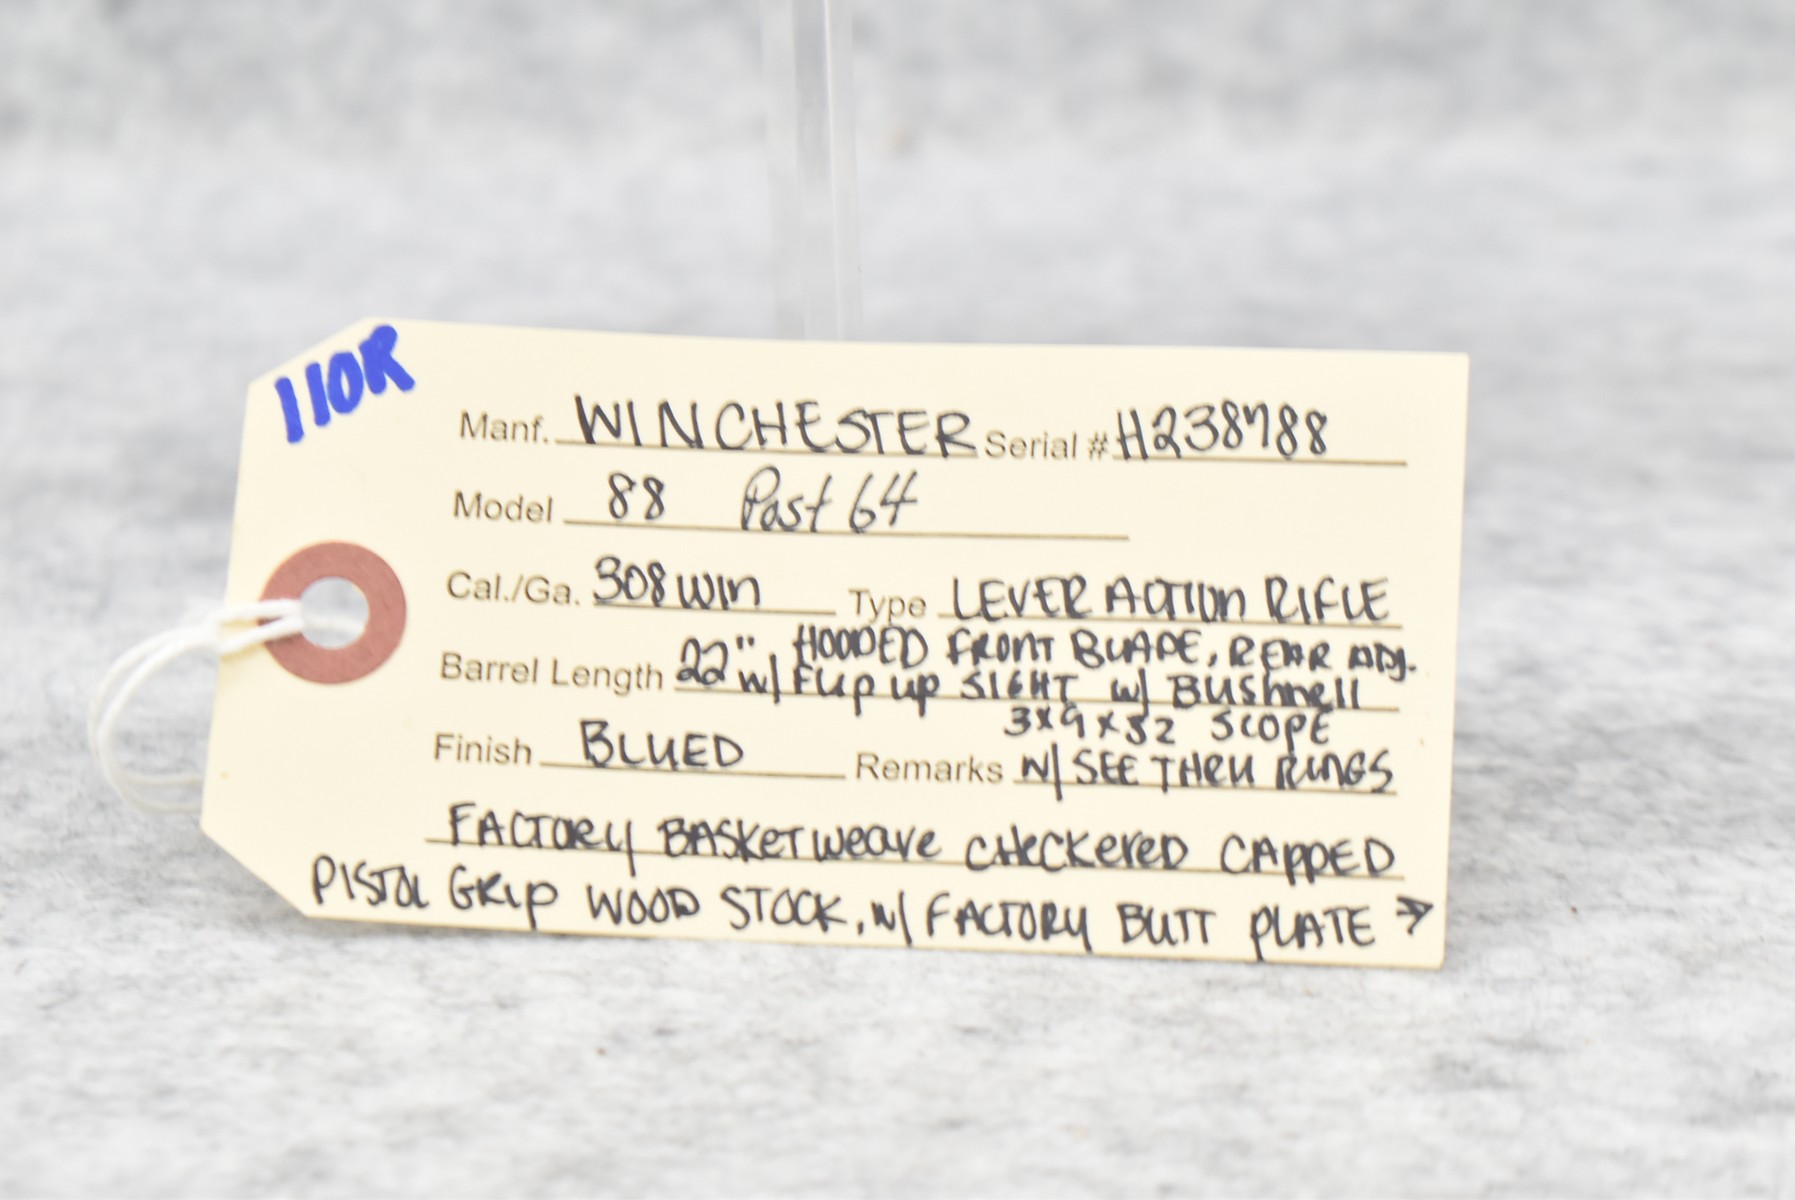 110R
Manf. WINCHESTER Serial # H238788
Model 88 Post 64
Cal./Ga. 308 WIN Type LEVER ACTION RIFLE
HOODED FRONT BLADE, REAR ADJ.
Barrel Length 22" w/ FLIP UP SIGHT w/ BUSHNELL
3x9x32 SCOPE
Finish BLUED Remarks W/ SEE THRU RINGS
FACTORY BASKETWEAVE CHECKERED CAPPED
PISTOL GRIP WOOD STOCK, W/ FACTORY BUTT PLATE →